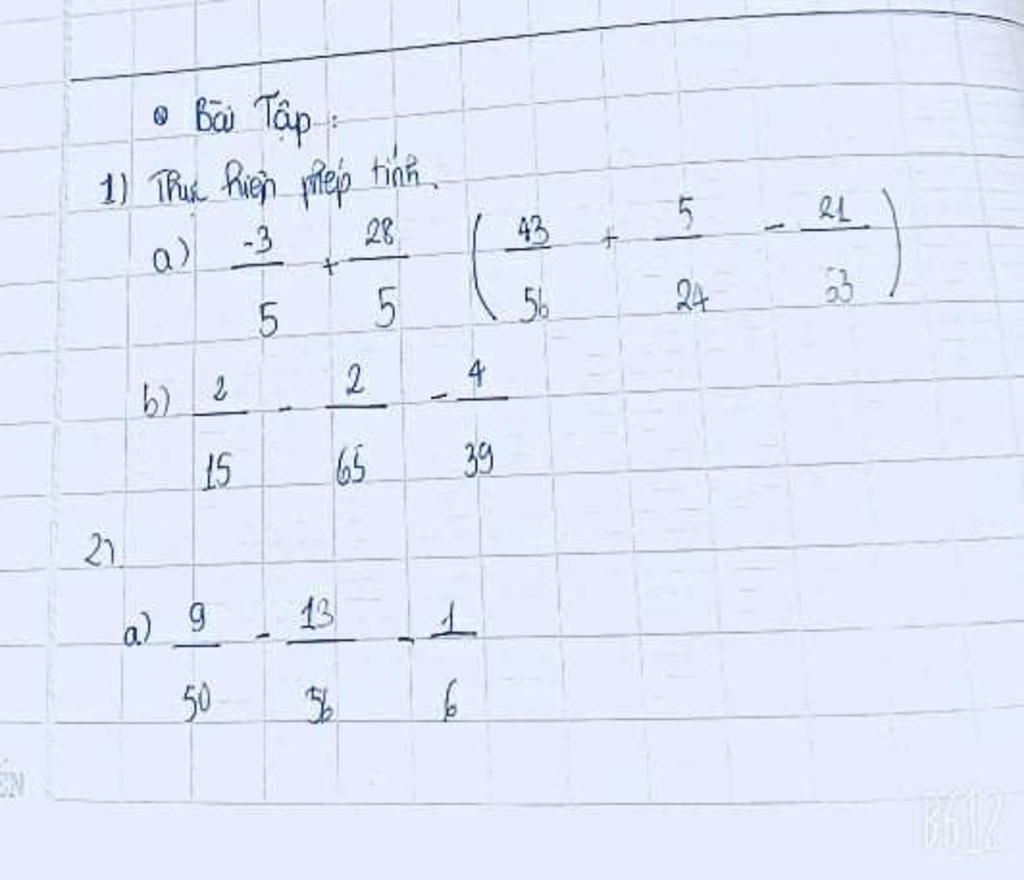 Bài Tập :
1) Thực hiện phép tính.
a) -3/5 + 28/5 (43/56 + 5/24 - 21/63)
b) 2/15 - 2/65 - 4/39
2)
a) 9/50 - 13/56 - 1/6
B612